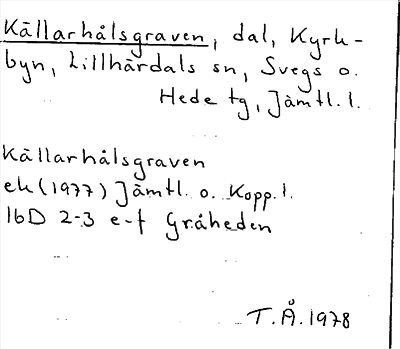 Källarhålsgraven, dal, Kyrk-
byn, Lillhärdals sn, Svegs o.
Hede tg, Jämtl. l.
Källarhålsgraven
ek (1977) Jämtl. o. Kopp. l.
16D 2-3 e-f Gråheden
T.Å. 1978